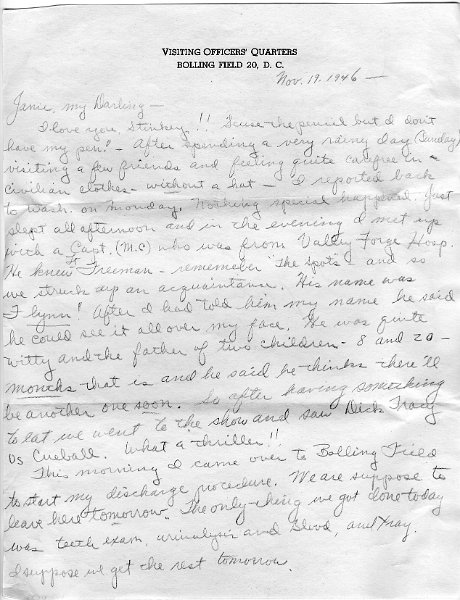 VISITING OFFICERS' QUARTERS
BOLLING FIELD 20, D. C.
Nov. 19, 1946 —
Janie, my Darling —
I love you, Stinkey!! 'Scuse the pencil but I don't
have my pen! - After spending a very rainy day (Sunday)
visiting a few friends and feeling quite carefree in
civilian clothes - without a hat - I reported back
to Wash. on Monday. Nothing special happened. Just
slept all afternoon and in the evening I met up
with a Capt. (M.C) who was from Valley Forge Hosp.
He knew Freeman - rememeber "the spots" - and so
we struck up an acquaintance. His name was
Flynn! After I had told him my name he said
he could see it all over my face. He was quite
witty and the father of two children - 8 and 20 -
months that is and he said he thinks there'll
be another one soon. So after having something
to eat we went to the show and saw Dick Tracy
Vs Cueball. What a thriller!!
This morning I came over to Bolling Field
to start my discharge procedure. We are suppose to
leave here tomorrow. The only thing we got done today
was teeth exam, urinalysis and blood, and Xray.
I suppose we get the rest tomorrow.